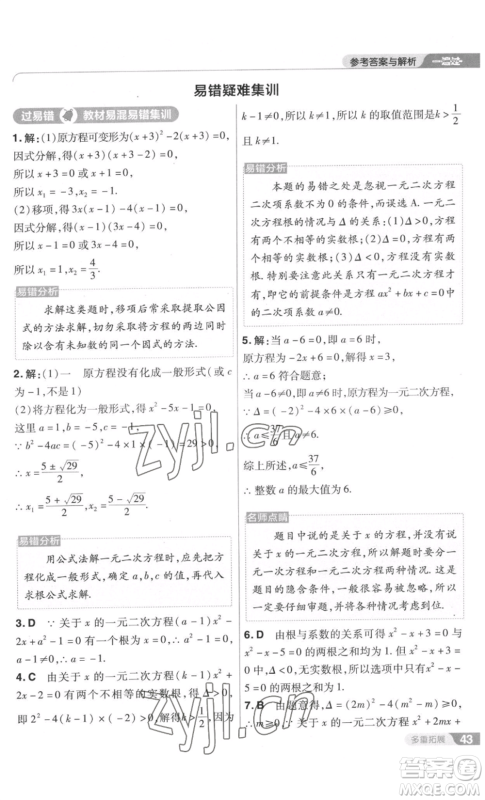 参考答案与解析 一遍过
易错疑难集训
过易错 教材易混易错集训
1. 解：(1)原方程可变形为(x+3)²-2(x+3)=0,
因式分解,得(x+3)(x+3-2)=0,
所以 x+3=0 或 x+1=0,
所以 x₁=-3, x₂=-1.
(2)移项,得(3x-4)²-(3x-4)=0,
因式分解,得(3x-4)(3x-
所以 3x-4=0 或
所以 x₁= x₂=4/3.
易错分析
求解这类题时,移项后常采取提取公因
式的方法求解,易错将方程的两边同时
除以含有未知数的同一个因式.
2. 解：(1)一 原方程没有化成一般形式(或 c
为-1,不是1)
(2)将方程化成一般形式,得 x²-5x-1=0,
这里 a=1, b=-5, c=-1.
∵ b²-4ac=(-5)²-4×1×(-1)=29>0,
∴ x=(5±√29)/2,
∴ x₁=(5+√29)/2, x₂=(5-√29)/2.
易错分析
用公式法解一元二次方程时,应先把方
程化成一般形式,确定 a,b,c 的值时,不要漏
掉符号.
3. D ∵ 关于 x 的一元二次方程(a-1)x²-
2x+a²-1=0有一个根为x=0,∴
4. C 由关于 x 的一元二次方程(k-1)x²+
2x-2=0有两个不相等的实数根,得Δ>0,
即2²-4(k-1)×(-2)>0,解得k>1/2. 因为
且 k-1≠0,所以 k 的取值范围是 k>1/2
且 k≠1.
易错分析
本题的易错之处是忽视一元二次方程
二次项系数不为 0 的条件,而误选 A. 一元
二次方程根的情况与 Δ 的关系：(1)Δ>0,方
程有两个不相等的实数根；(2)Δ=0,方程有
两个相等的实数根；(3)Δ<0,方程没有实数
根. 特别地,当已知方程有实数根时,Δ≥0.
上述关系的前提条件是方程 ax²+bx+c=0
中的 a≠0.
5. 解：当 a-6=0,即 a=6 时,
原方程为-2x+6=0,解得 x=3,
∴ a=6 符合题意；
当 a-6≠0,即 a≠6 时,
原方程为一元二次方程,
∵ Δ=(-2)²-4(a-6)×6≥0,
∴ a≤37/6且 a≠6.
综上所述,a≤37/6,
∴ 整数 a 的最大值为 6.
名师点睛
题目中说的是关于 x 的方程,并没有说
是关于 x 的一元二次方程,所以存在两种情
况,但是很容易忽略这种情况,所以做题时一
定要仔细审题,并将各种情况考虑全面.
6. D 由根与系数的关系可得 x²-x+3=0 与
x²-x-5=0
x²-x-5=0 的实数根的和为 1.
7. D 由题意,得 Δ=(2m)²-4(m²+m)≥0,
∴ m≤0. ∵ 关于 x 的一元二次方程 x²+2mx+
多重拓展 43
zyjl.cn
zyjl.cn